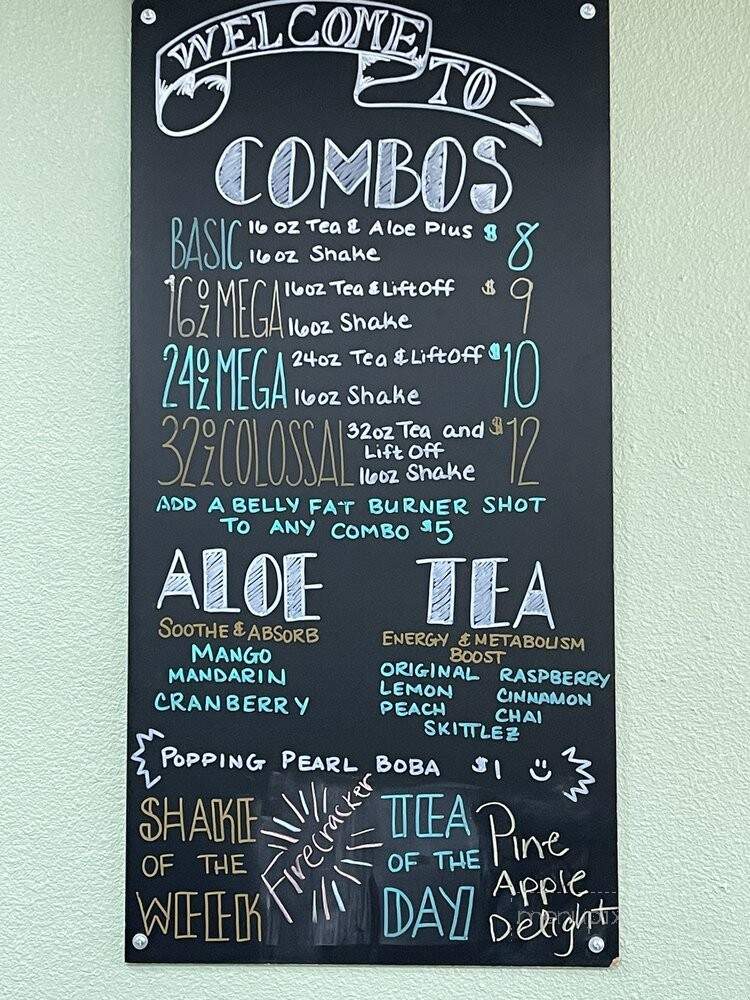 WELCOME
TO
COMBOS
BASIC 16 oz Tea & Aloe Plus $8
16 oz Shake
16oz MEGA 16oz Tea & Lift Off $9
16oz Shake
24oz MEGA 24oz Tea & Lift Off $10
16oz Shake
32oz COLOSSAL 32oz Tea and $12
Lift Off
16oz Shake
ADD A BELLY FAT BURNER SHOT
TO ANY COMBO $5
ALOE
SOOTHE & ABSORB
MANGO
MANDARIN
CRANBERRY
TEA
ENERGY & METABOLISM
BOOST
ORIGINAL RASPBERRY
LEMON CINNAMON
PEACH CHAI
SKITTLEZ
POPPING PEARL BOBA $1
SHAKE
OF THE
WEEK
Firecracker
TEA
OF THE
DAY
Pine
Apple
Delight
menupix